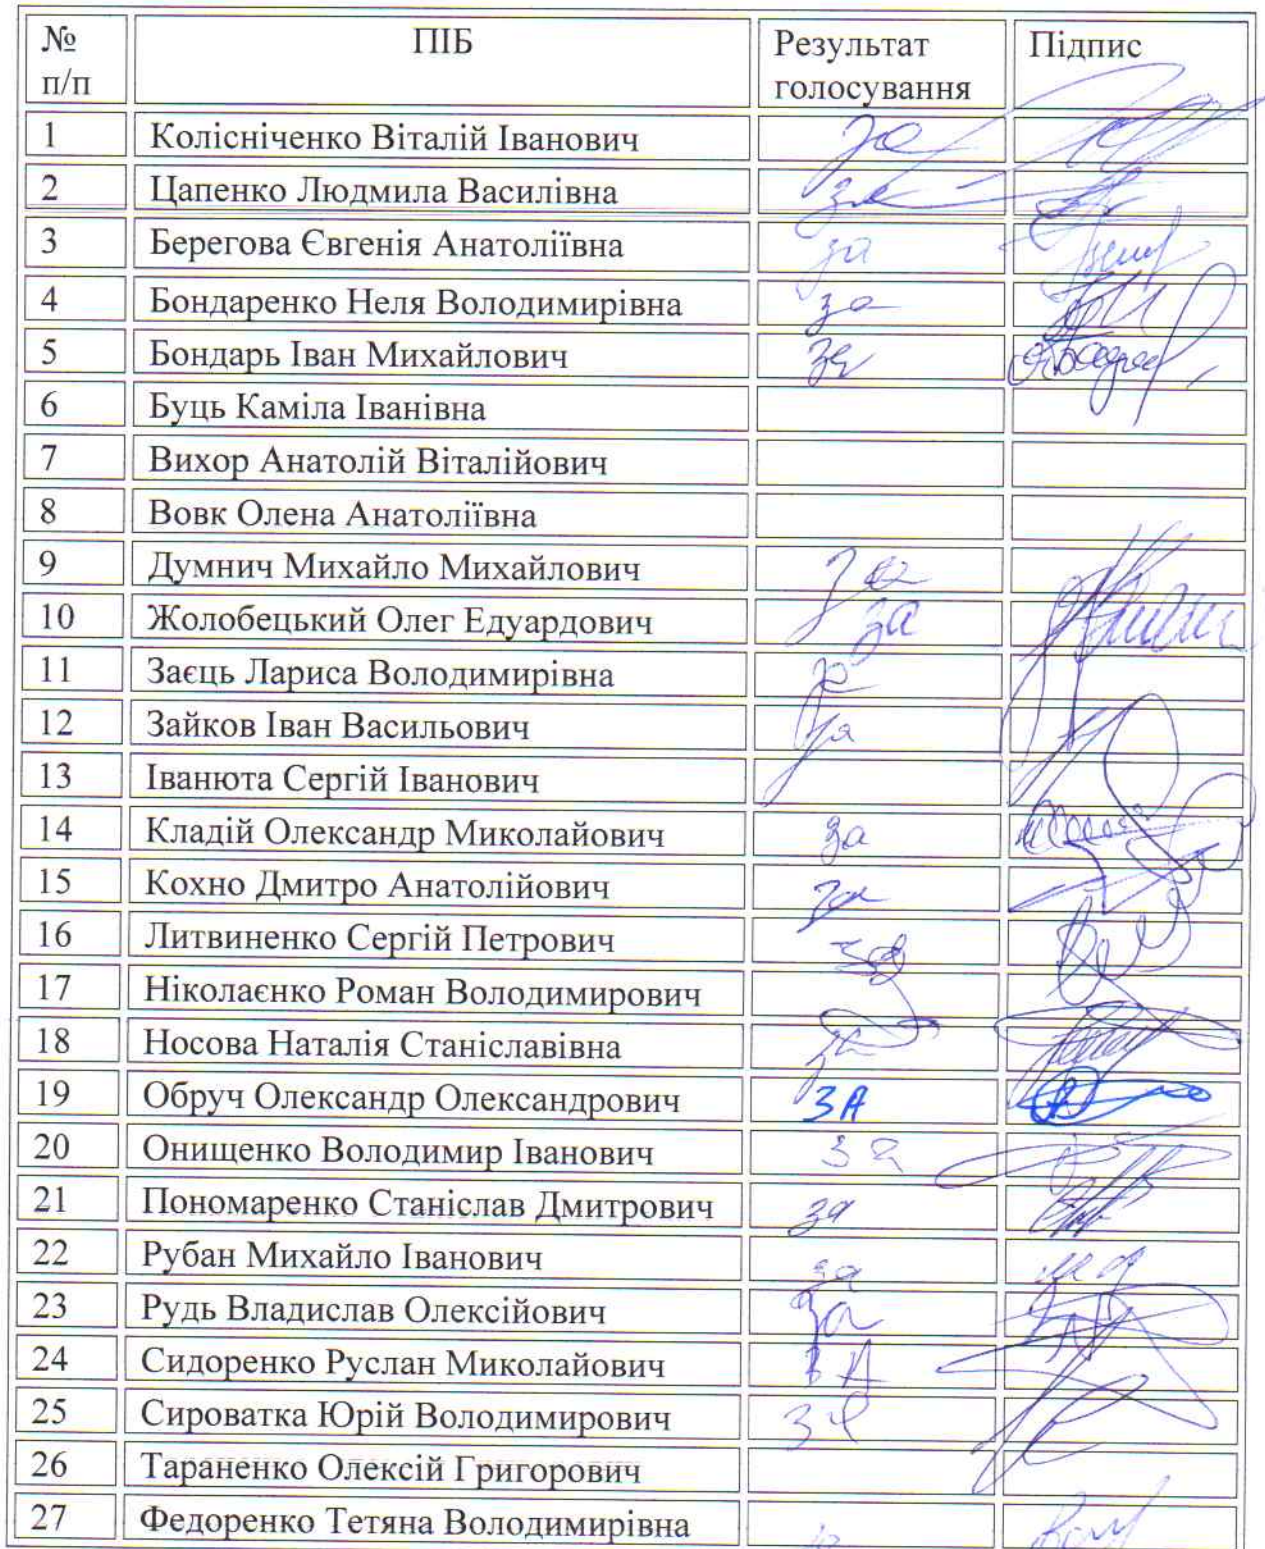 № п/п ПІБ Результат голосування Підпис
1 Колісніченко Віталій Іванович за
2 Цапенко Людмила Василівна за
3 Берегова Євгенія Анатоліївна за
4 Бондаренко Неля Володимирівна за
5 Бондарь Іван Михайлович за
6 Буць Каміла Іванівна
7 Вихор Анатолій Віталійович
8 Вовк Олена Анатоліївна
9 Думнич Михайло Михайлович за
10 Жолобецький Олег Едуардович за
11 Заєць Лариса Володимирівна за
12 Зайков Іван Васильович за
13 Іванюта Сергій Іванович
14 Кладій Олександр Миколайович за
15 Кохно Дмитро Анатолійович за
16 Литвиненко Сергій Петрович за
17 Ніколаєнко Роман Володимирович
18 Носова Наталія Станіславівна за
19 Обруч Олександр Олександрович ЗА
20 Онищенко Володимир Іванович за
21 Пономаренко Станіслав Дмитрович за
22 Рубан Михайло Іванович за
23 Рудь Владислав Олексійович за
24 Сидоренко Руслан Миколайович ЗА
25 Сироватка Юрій Володимирович за
26 Тараненко Олексій Григорович
27 Федоренко Тетяна Володимирівна